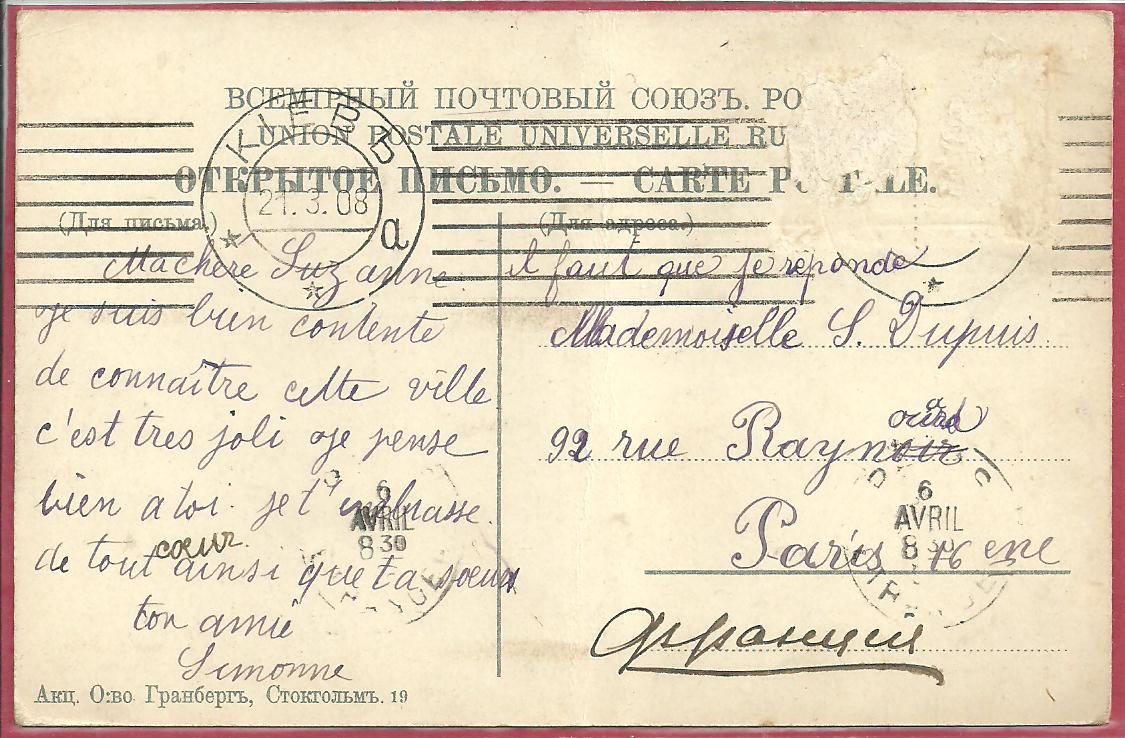 ВСЕМІРНЫЙ ПОЧТОВЫЙ СОЮЗЪ. РО
UNION POSTALE UNIVERSELLE RU
ОТКРЫТОЕ ПИСЬМО. — CARTE P T LE.
КІЕВЪ
21.3.08
а
(Для письма.)
(Для адреса.)
Machère Suzanne
je suis bien contente
de connaître cette ville
c'est tres joli je pense
bien a toi. je t'embrasse.
cœur.
de tout ainsi que ta soeur
ton amie
Simonne
il faut que je reponde
Mademoiselle S. Dupuis.
ouard
92 rue Raynoir
Paris 16 eme
Франция
6
AVRIL
8 30
6
AVRIL
8 30
Акц. О:во Гранбергъ, Стокгольмъ. 19